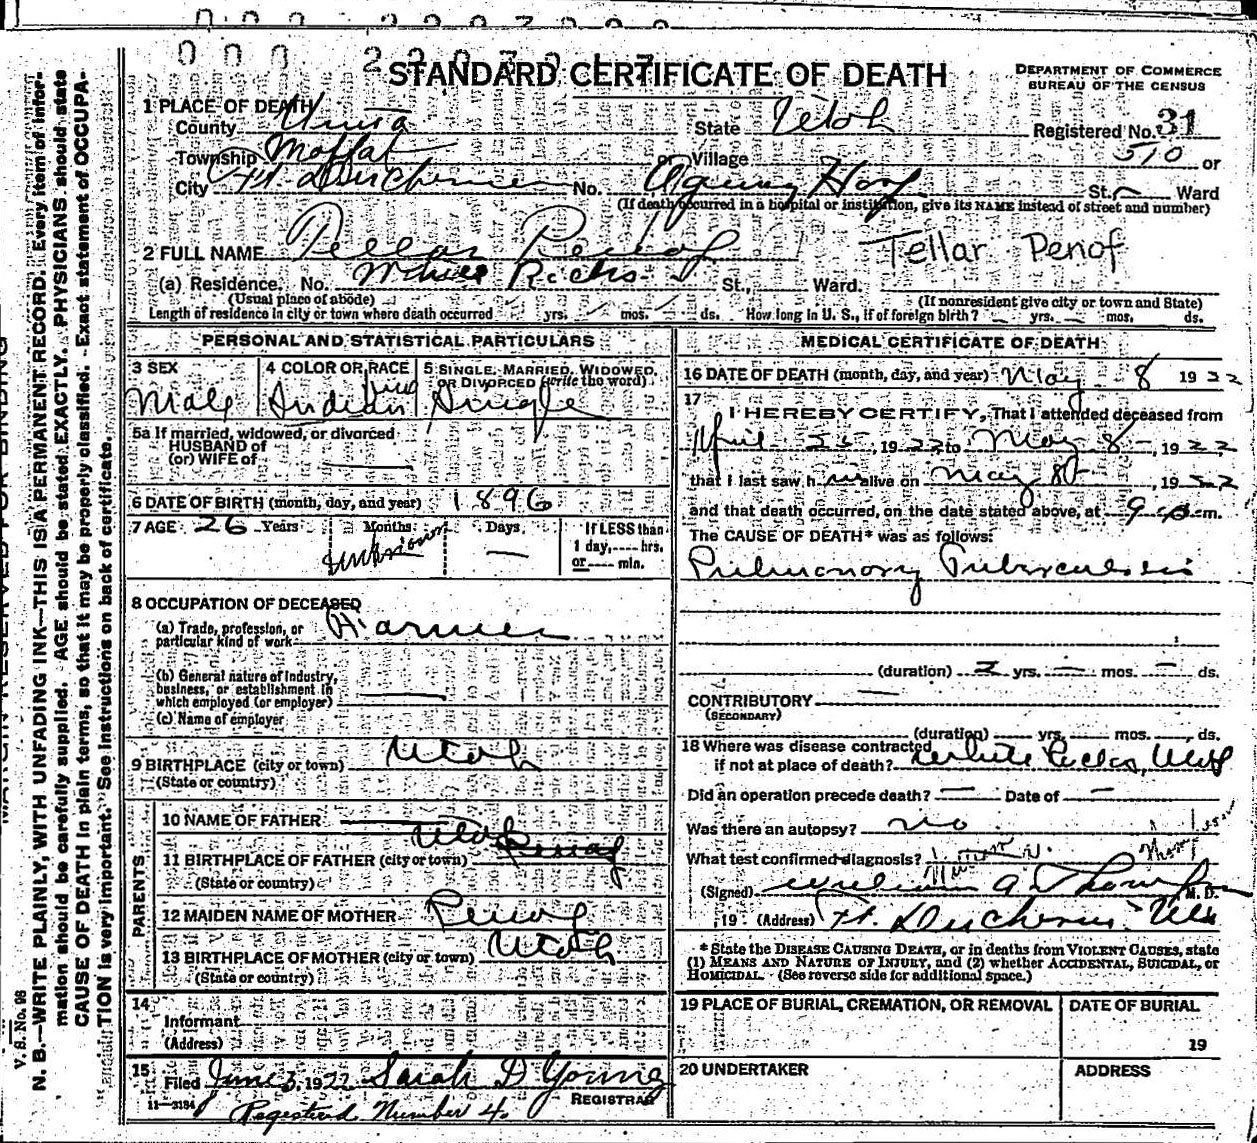 STANDARD CERTIFICATE OF DEATH
DEPARTMENT OF COMMERCE
BUREAU OF THE CENSUS
1 PLACE OF DEATH
County State Utah Registered No. 31
Township Moffat or Village 510 or
City Ft. Duchesne No. Agency St. Ward
(If death occurred in a hospital or institution, give its NAME instead of street and number)
2 FULL NAME Tellar Penof Tellar Penof
(a) Residence. No. White Rocks St., Ward.
(Usual place of abode) (If nonresident give city or town and State)
Length of residence in city or town where death occurred yrs. mos. ds. How long in U. S., if of foreign birth? yrs. mos. ds.
PERSONAL AND STATISTICAL PARTICULARS
3 SEX 4 COLOR OR RACE 5 SINGLE, MARRIED, WIDOWED, OR DIVORCED (write the word)
Male Indian Single
5a If married, widowed, or divorced
HUSBAND of
(or) WIFE of
6 DATE OF BIRTH (month, day, and year) 1896
7 AGE 26 Years Months Days If LESS than
unknown — 1 day, ---- hrs.
or ---- min.
8 OCCUPATION OF DECEASED
(a) Trade, profession, or
particular kind of work Farmer
(b) General nature of industry,
business, or establishment in
which employed (or employer)
(c) Name of employer
9 BIRTHPLACE (city or town) Utah
(State or country)
PARENTS
10 NAME OF FATHER
11 BIRTHPLACE OF FATHER (city or town) Utah Penof
(State or country)
12 MAIDEN NAME OF MOTHER Penof
13 BIRTHPLACE OF MOTHER (city or town) Utah
(State or country)
14
Informant
(Address)
15
Filed June 5, 1922 Sarah D Young
REGISTRAR
11—3184
Registered Number 4.
MEDICAL CERTIFICATE OF DEATH
16 DATE OF DEATH (month, day, and year) May 8 1922
17
I HEREBY CERTIFY, That I attended deceased from
April 25, 1922 to May 8, 1922
that I last saw him alive on May 8, 1922
and that death occurred, on the date stated above, at 9 m.
The CAUSE OF DEATH* was as follows:
Pulmonary Tuberculosis
(duration) 2 yrs. — mos. — ds.
CONTRIBUTORY
(SECONDARY)
(duration) yrs. mos. ds.
18 Where was disease contracted
if not at place of death? White Rocks, Utah
Did an operation precede death? — Date of —
Was there an autopsy? no
What test confirmed diagnosis?
(Signed) William A Thompson M. D.
, 19 (Address) Ft. Duchesne Utah
* State the DISEASE CAUSING DEATH, or in deaths from VIOLENT CAUSES, state
(1) MEANS AND NATURE OF INJURY, and (2) whether ACCIDENTAL, SUICIDAL, or
HOMICIDAL. (See reverse side for additional space.)
19 PLACE OF BURIAL, CREMATION, OR REMOVAL DATE OF BURIAL
19
20 UNDERTAKER ADDRESS
V. S. No. 98
N. B.—WRITE PLAINLY, WITH UNFADING INK—THIS IS A PERMANENT RECORD. Every item of information should be carefully supplied. AGE should be stated EXACTLY. PHYSICIANS should state
CAUSE OF DEATH in plain terms, so that it may be properly classified. Exact statement of OCCUPATION is very important. See instructions on back of certificate.